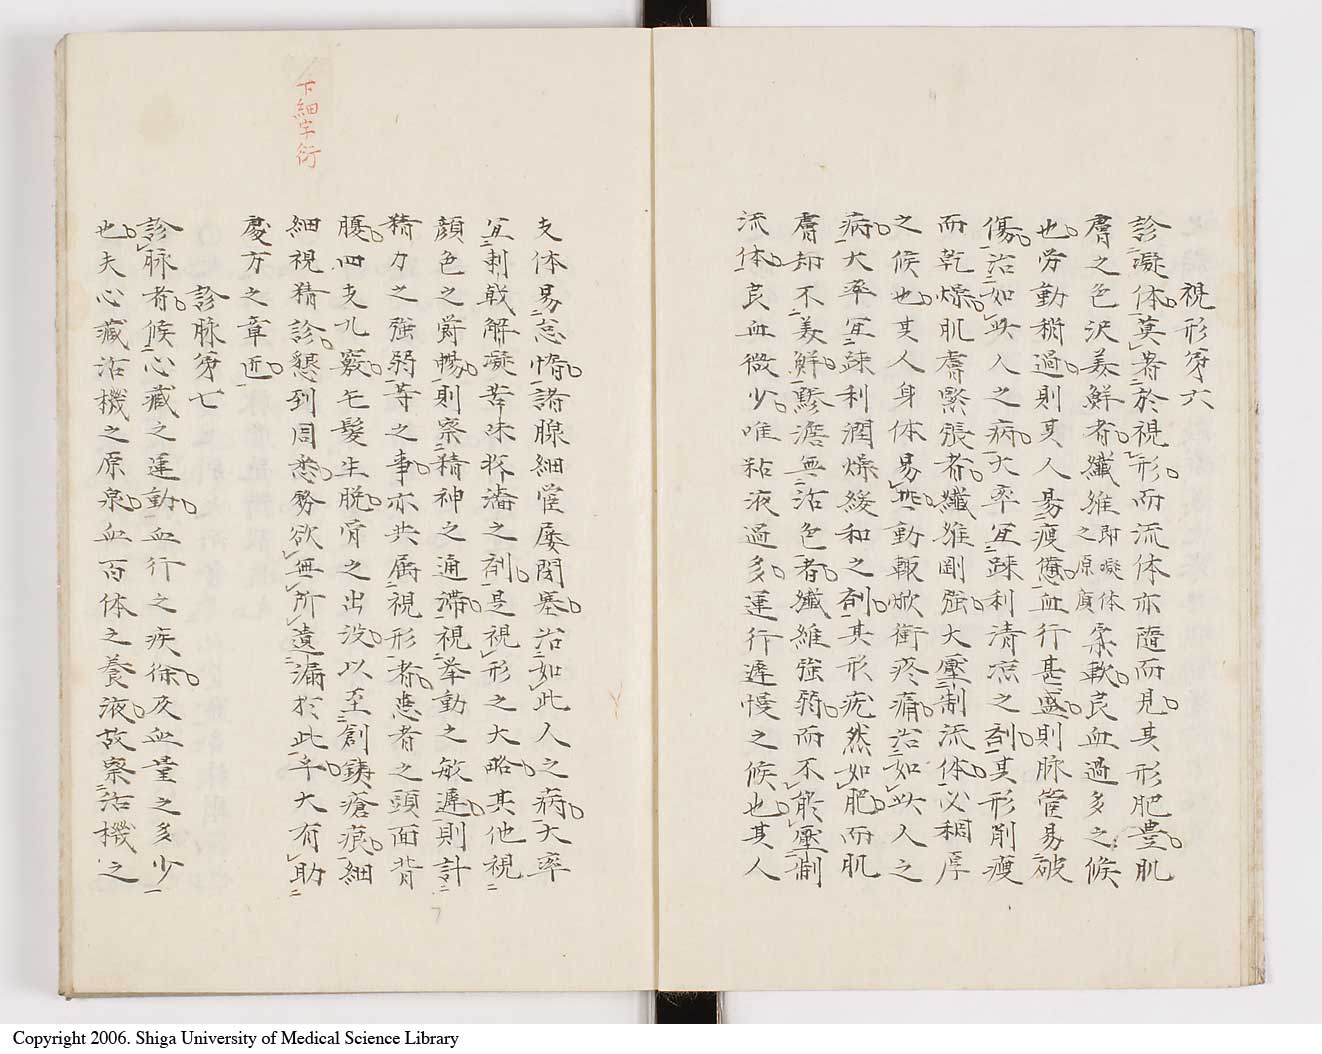 視形第六
診凝体莫善於視形而流体亦隨而見其形肥豊肌
膚之色沢美鮮者繊維即凝体之原質柔軟良血過多之候
也労動稍過則其人易瘦憊血行甚盛則脉管易破
傷治如此人之病大率宜疎利清涼之剤其形削瘦
而乾燥肌膚緊張者繊維剛強大壓制流体必稠厚
之候也其人身体易些動輙焮衝疼痛治如此人之
病大率宜疎利潤燥緩和之剤其形疣然如肥而肌
膚却不美鮮黲澹無活色者繊維強弱而不能壓制
流体良血微少唯粘液過多運行遅慢之候也其人
支体易怠惰諸腺細管屡閉塞治如此人之病大率
宜刺戟解凝苦味揮瀹之剤是視形之大略其他視
顔色之欝暢則察精神之通滞視挙動之敏遅則計
精力之強弱等之事亦共属視形者患者之頭面背
腹四支九竅毛髪生脱骨之出没以至創鋳瘡痕細
細視精診懇到周悉努欲無所遺漏於此乎大有助
處方之章迊
診脉第七
診脉者候心藏之運動血行之疾徐及血量之多少
也夫心藏活機之原泉血百体之養液故察活機之
下細字衍
Copyright 2006. Shiga University of Medical Science Library